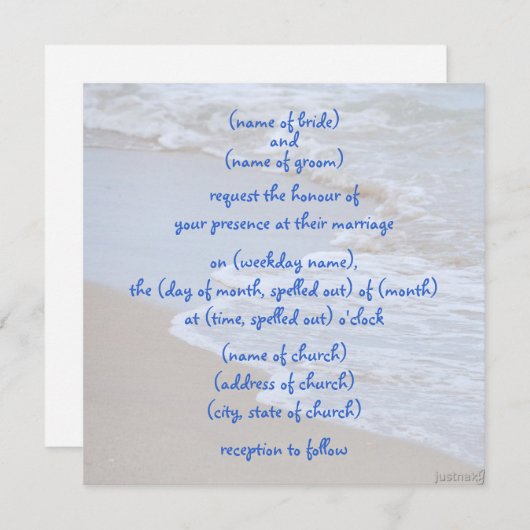 (name of bride)
and
(name of groom)
request the honour of
your presence at their marriage
on (weekday name),
the (day of month, spelled out) of (month)
at (time, spelled out) o'clock
(name of church)
(address of church)
(city, state of church)
reception to follow
justnak